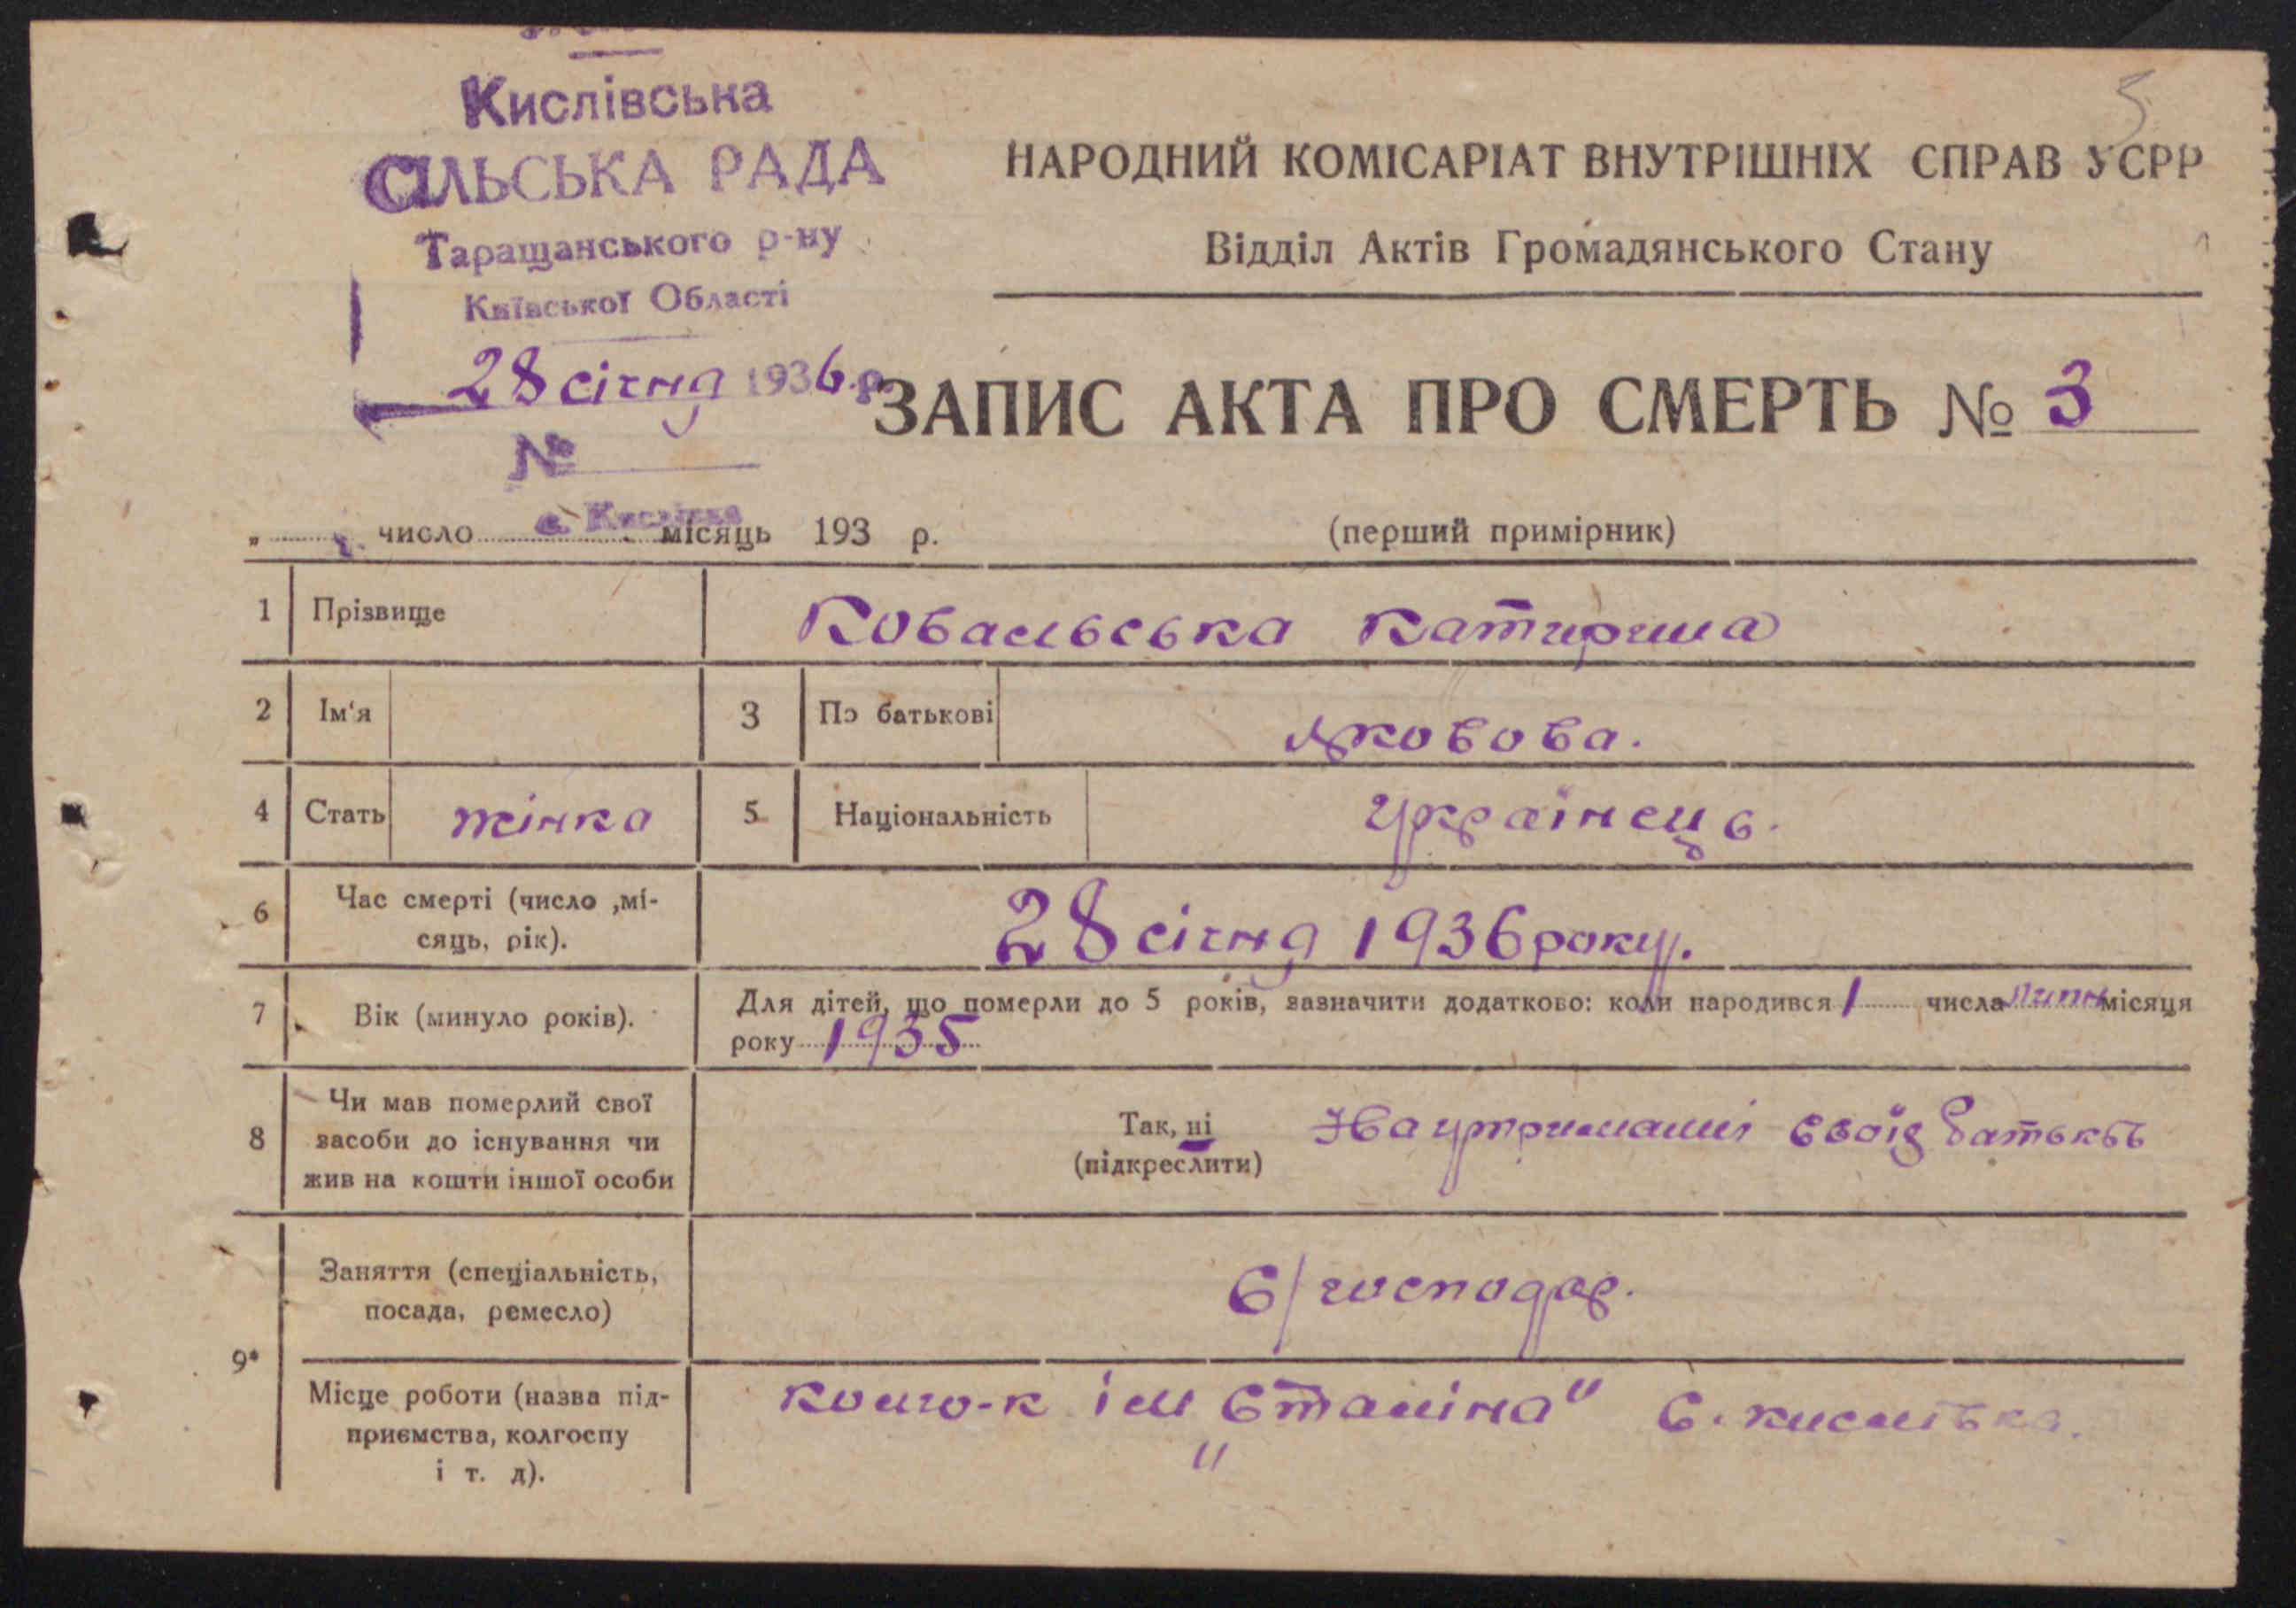 Кислівська
СІЛЬСЬКА РАДА
Таращанського р-ну
Київської Області
28 січня 1936 р.
№
с. Кислівка
5
НАРОДНИЙ КОМІСАРІАТ ВНУТРІШНІХ СПРАВ УСРР
Відділ Актів Громадянського Стану
ЗАПИС АКТА ПРО СМЕРТЬ № 3
„ число місяць 193 р.
(перший примірник)
1 Прізвище Ковальська Катирина
2 Ім'я 3 По батькові Яковова.
4 Стать жінка 5 Національність українець.
6 Час смерті (число ,мі-
сяць, рік). 28 січня 1936 року.
7 Вік (минуло років). Для дітей, що померли до 5 років, зазначити додатково: коли народився 1 числа липн місяця
року 1935
8 Чи мав померлий свої
засоби до існування чи
жив на кошти іншої особи
Так, ні
(підкреслити)
На утриманні своїх батьків
9*
Заняття (спеціальність,
посада, ремесло)
С/господар.
Місце роботи (назва під-
приємства, колгоспу
і т. д).
колго-к ім „Сталіна" С. Кислівка.